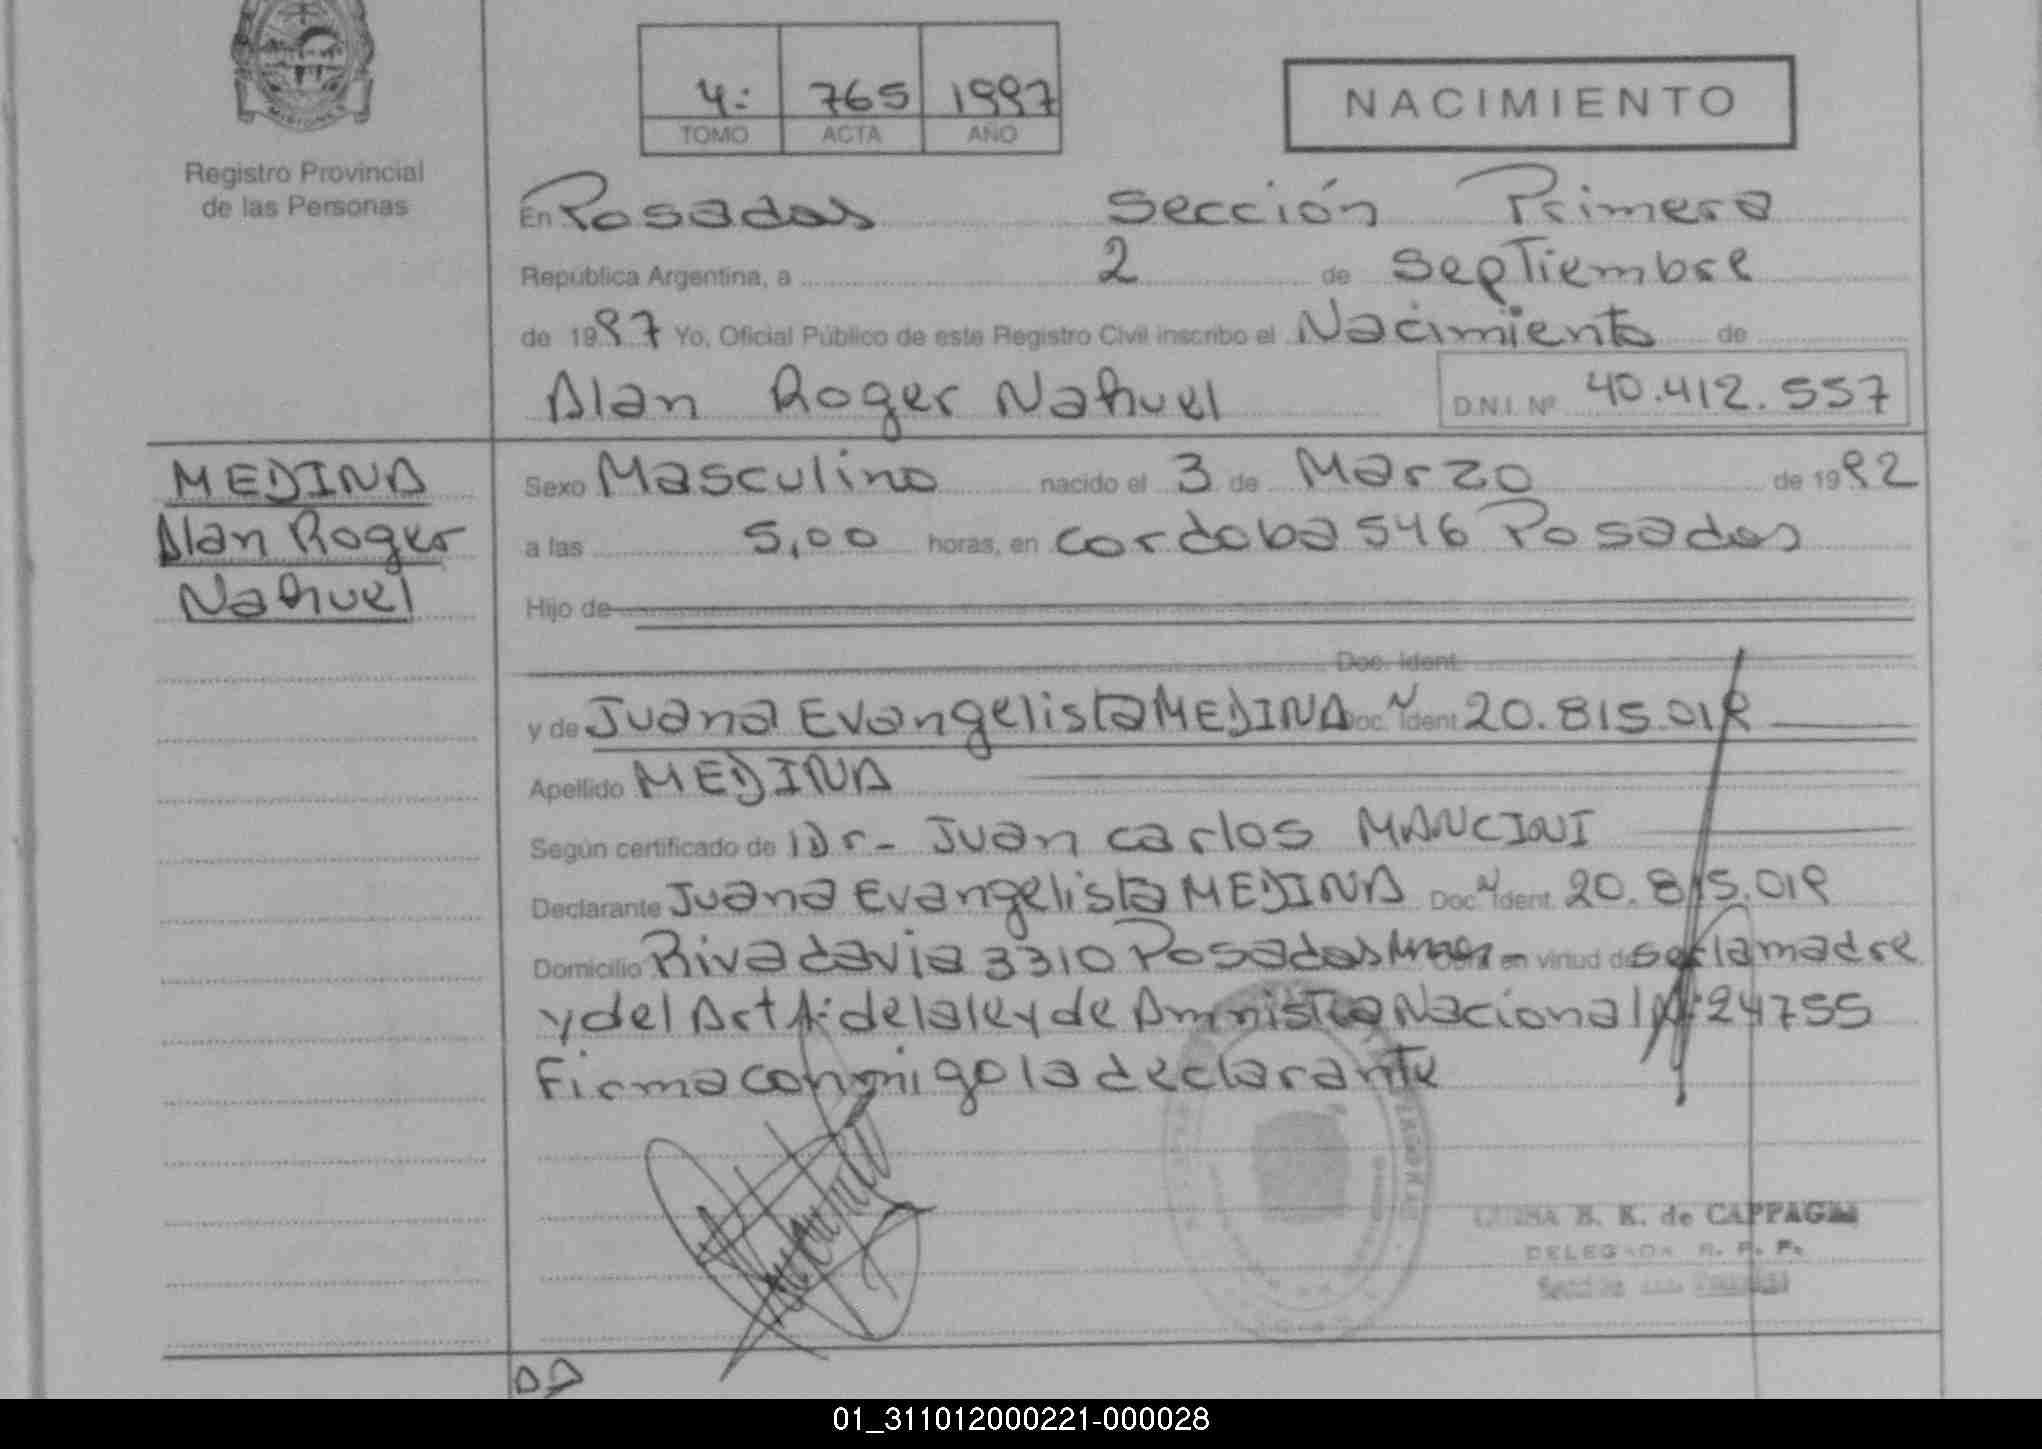 MISIONES
Registro Provincial
de las Personas
4: 765 1997
TOMO ACTA AÑO
NACIMIENTO
En Posadas Sección Primera
República Argentina, a 2 de Septiembre
de 1997 Yo, Oficial Público de este Registro Civil inscribo el Nacimiento de
Alan Roger Nahuel D.N.I. Nº 40.412.557
MEDINA
Alan Roger
Nahuel
Sexo Masculino nacido el 3 de Marzo de 1992
a las 5,00 horas, en Cordoba 546 Posadas
Hijo de
Doc. Ident.
y de Juana Evangelista MEDINA Doc. Ident. 20.815.019
Apellido MEDINA
Según certificado de Dr- Juan Carlos MANCINI
Declarante Juana Evangelista MEDINA Doc. Ident. 20.815.019
Domicilio Rivadavia 3310 Posadas en virtud de ser la madre
y del Art de la ley de Amnistia Nacional Nº 24755
Firma conmigo la declarante
B. K. de CAPPAGLI
DELEGADA R. P. P.
01_311012000221-000028